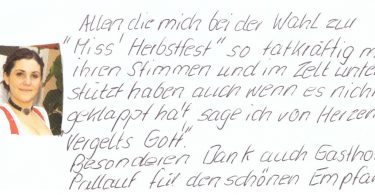 Allen die mich bei der Wahl zur
"Miss' Herbstfest" so tatkräftig m
ihren Stimmen und im Zelt unte
stützt haben auch wenn es nich
geklappt hat sage ich von Herzen
"Vergelts Gott".
Besonderen Dank auch Gastho
Prllauf für den schönen Empfa